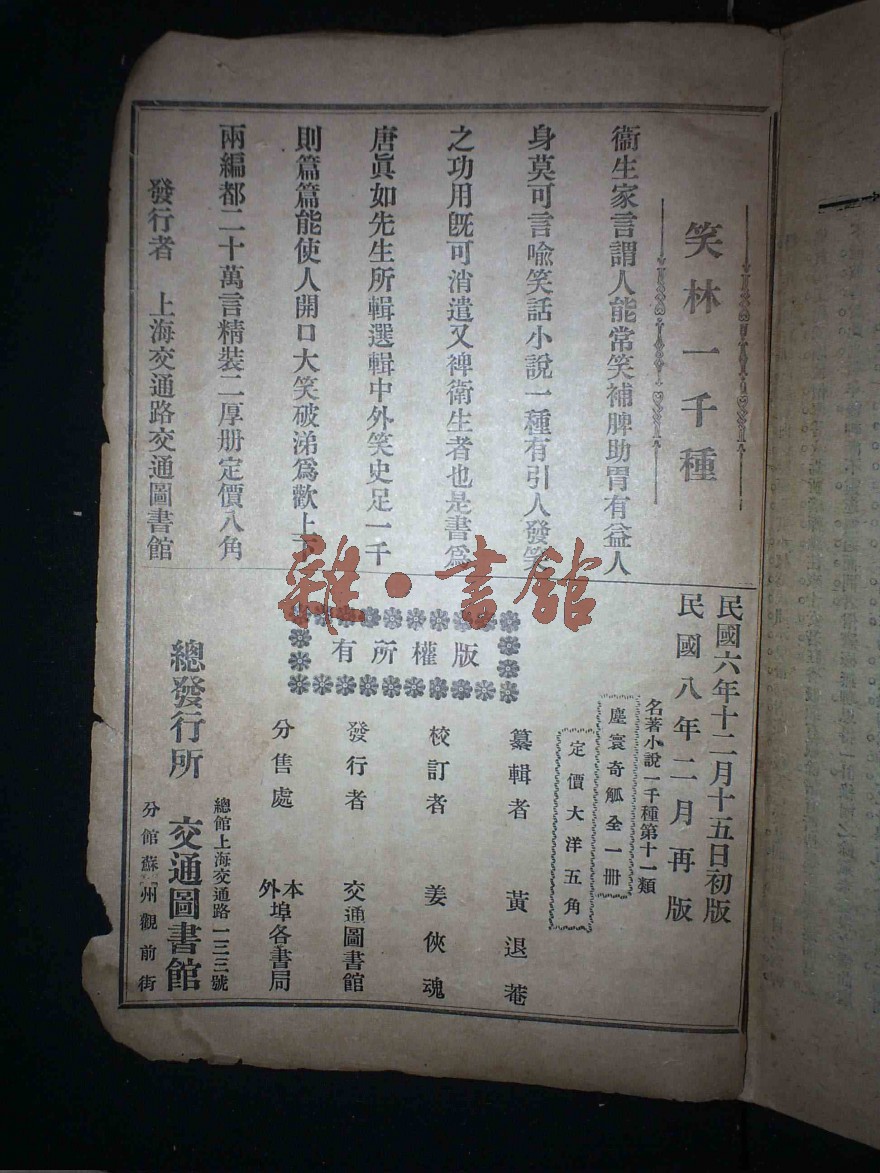 笑林一千種
衞生家言謂人能常笑補脾助胃有益人
身莫可言喩笑話小說一種有引人發笑
之功用旣可消遣又裨衞生者也是書爲
唐眞如先生所輯選輯中外笑史足一千
則篇篇能使人開口大笑破涕爲歡上下
兩編都二十萬言精裝二厚册定價八角
發行者　上海交通路交通圖書館
民國六年十二月十五日初版
民國八年二月再版
名著小說一千種第十一類
塵寰奇觚全一册
定價大洋五角
版權所有
纂輯者　黃退菴
校訂者　姜俠魂
發行者　交通圖書館
分售處　本外埠各書局
總發行所　交通圖書館
總館上海交通路一三三號
分館蘇州觀前街
雜·書館